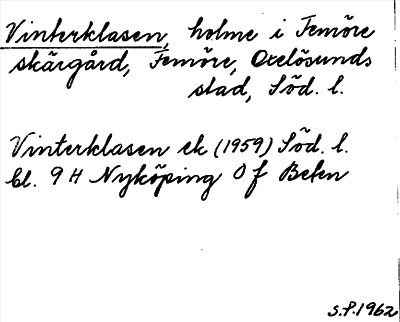 Vinterklasen, holme i Femöre
skärgård, Femöre, Oxelösunds
stad, Söd. l.
Vinterklasen ek (1959) Söd. l.
bl. 9 H Nyköping O f Beten
S.P. 1962